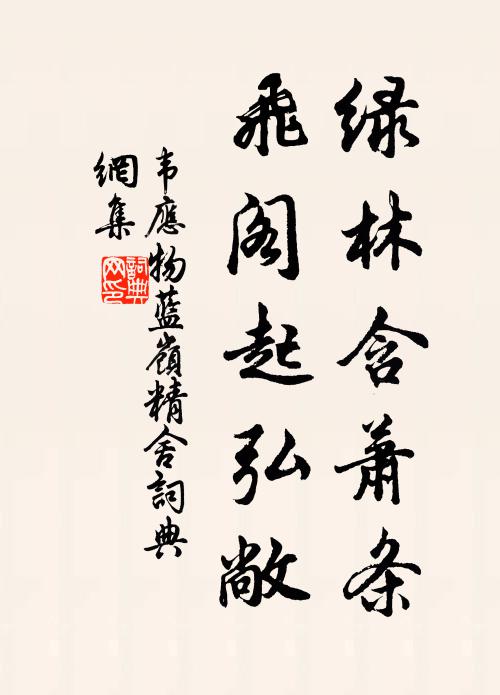 绿林含萧条
飛阁起弘敞
韦應物藍嶺精舍詞典
網集
詞典
网印